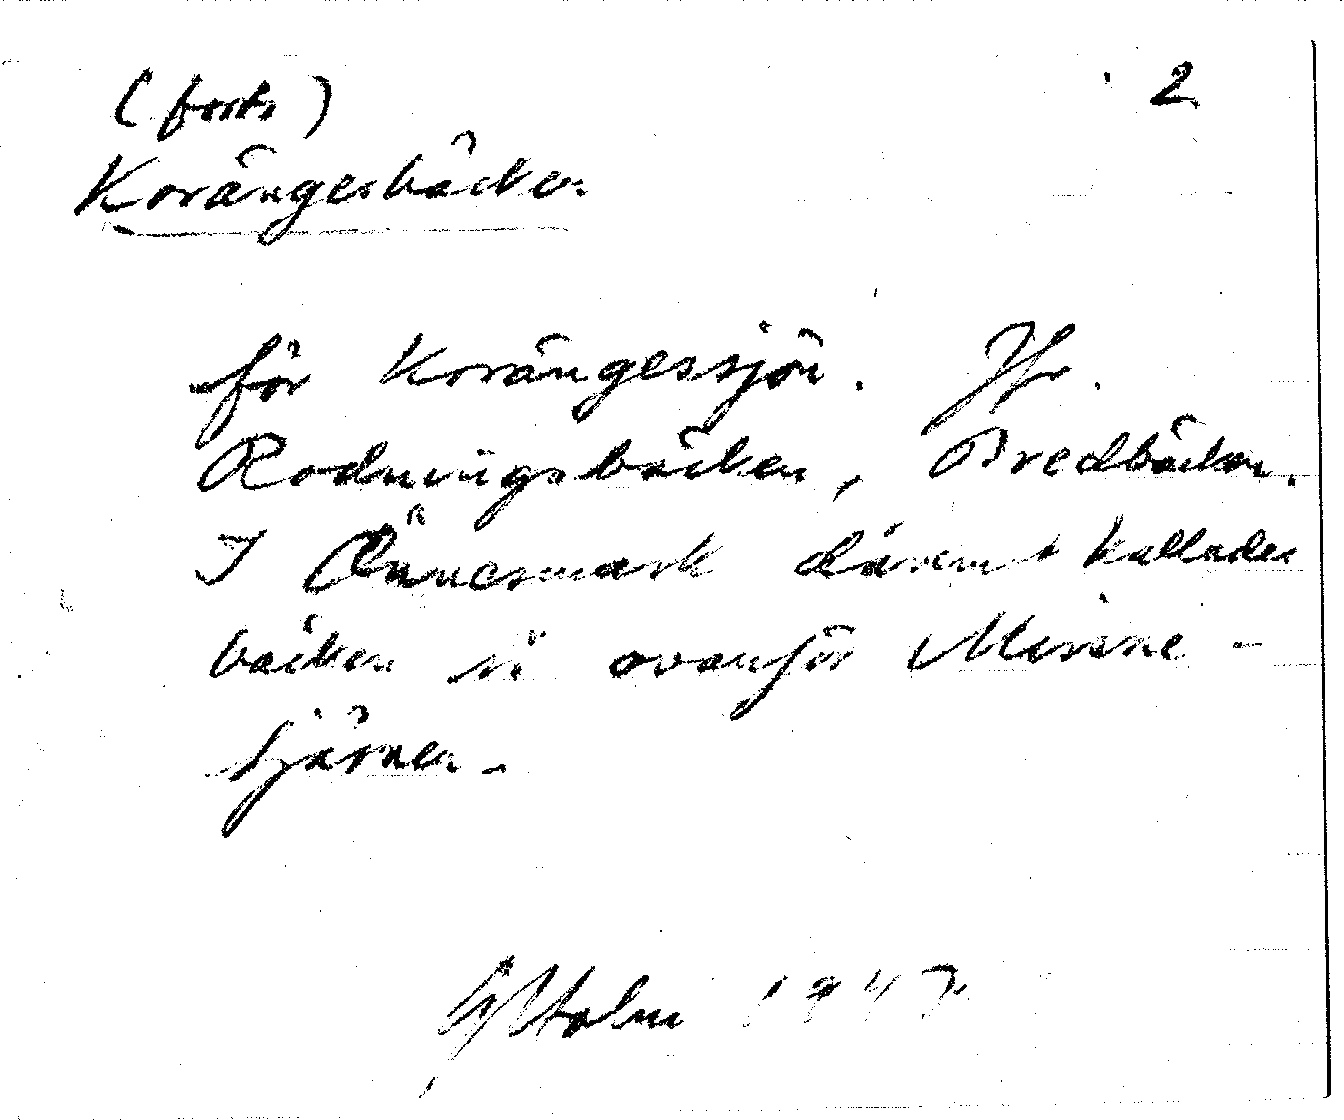 (forts) 2
Korängesbäcken
för Korängessjön. Jfr.
Rodningsbäcken, Bredbäcken.
I Önnesmark däremot kallades
bäcken så ovanför Minne-
tjärnen.
G Holm 1947